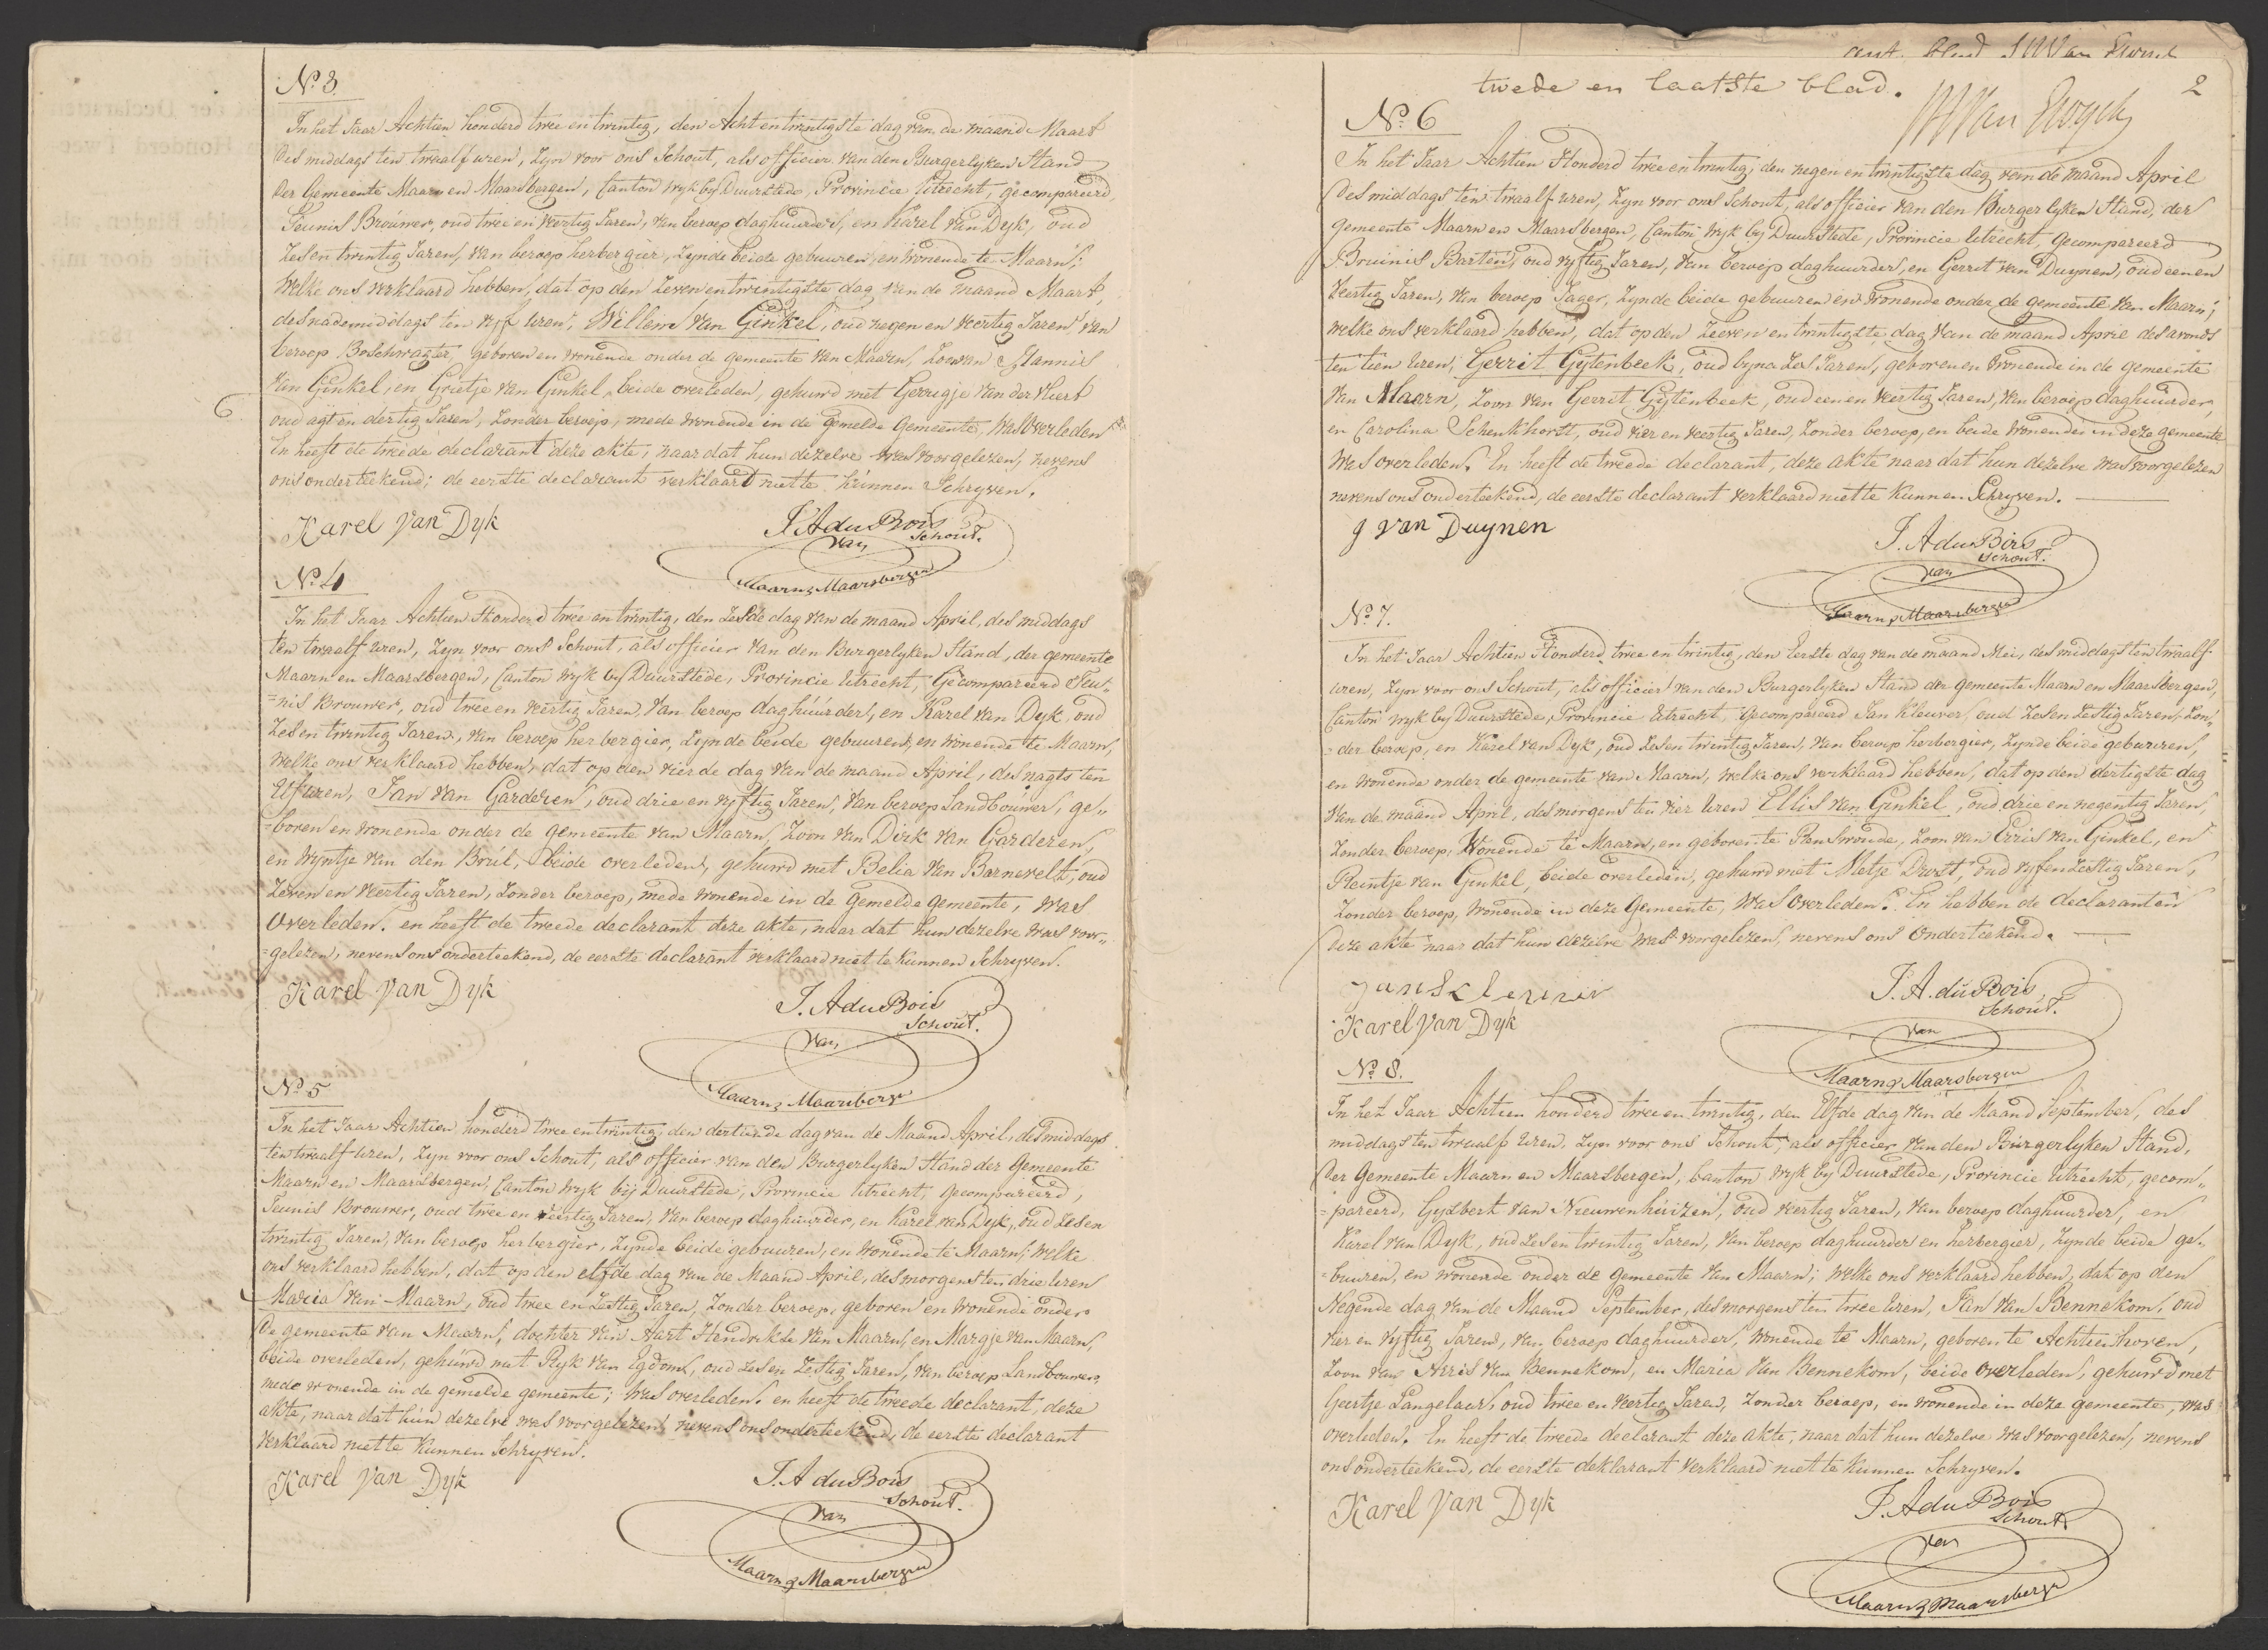 No. 3.
In het Jaar Achtien honderd twee en twintig, den Acht en twintigste dag van de maand Maart
des middags ten twaalf uren, Zyn voor ons Schout, als officier van den Burgerlyken Stand
der Gemeente Maarn en Maarsbergen, Canton Wyk by Duurstede, Provincie Utrecht, gecompareerd,
Teunis Brouwer, oud twee en veertig Jaren, van beroep daghuurder, en Karel van Dyk, oud
Zes en twintig Jaren, van beroep herbergier, Zynde beide gebuuren, en wonende te Maarn;
Welke ons verklaard hebben, dat op den Zeven en twintigste dag van de maand Maart,
des nademiddags ten vyf uren, Willem van Ginkel, oud negen en veertig Jaren, van
beroep Boschwagter, geboren en wonende onder de gemeente van Maarn, Zoon van Hannis
van Ginkel, en Grietje van Ginkel, beide overleden, gehuwd met Gerrigje van der Vliert
oud agt en dertig Jaren, Zonder beroep, mede wonende in de gemelde Gemeente, Was Overleden
En heeft de tweede declarant deze akte, naar dat hun dezelve was voorgelezen, nevens
ons onderteekend; de eerste declarant verklaard niet te kunnen Schryven.
Karel Van Dyk
J. A du Bois
Schout.
van
Maarn & Maarsbergen
No. 4
In het Jaar Achtien Honderd twee en twintig, den Zesde dag van de maand April, des middags
ten twaalf uren, Zyn voor ons Schout, als officier van den Burgerlyken Stand, der gemeente
Maarn en Maarsbergen, Canton Wyk by Duurstede, Provincie Utrecht, Gecompareerd Teu„
=nis Brouwer, oud twee en veertig Jaren, Van beroep daghúúrder, en Karel van Dyk, oud
Zes en twintig Jaren, van beroep herbergier, Zynde beide gebuuren, en wonende te Maarn,
Welke ons verklaard hebben, dat op den vierde dag van de maand April, des nagts ten
Elf uren, Jan van Garderen, oud drie en vyftig Jaren, van beroep Landbouwer, ge„
=boren en wonende onder de gemeente van Maarn, Zoon van Dirk van Garderen,
en Wyntje van den Brúl, beide overleden, gehuwd met Belia van Barnevelt, oud
Zeven en veertig Jaren, Zonder beroep, mede wonende in de Gemelde gemeente, Was
Overleden. en heeft de tweede declarant deze akte, naar dat hun dezelve was voor„
=gelezen, nevens ons onderteekend, de eerste declarant verklaard niet te kunnen Schryven.
Karel Van Dyk
J. A du Bois
Schout.
van
Maarn & Maarsbergen
No. 5
In het Jaar Achtien honderd twee en twintig, den dertiende dag van de Maand April, des middags
ten twaalf uren, Zyn voor ons Schout, als officier van den Burgerlyken Stand der Gemeente
Maarn en Maarsbergen, Canton Wyk bij Duurstede, Provincie Utrecht, gecompareerd,
Teunis Brouwer, oud twee en veertig Jaren, van beroep daghuurder, en Karel van Dyk, oud Zes en
twintig Jaren, van beroep herbergier, Zynde beide gebuuren, en wonende te Maarn; Welke
ons verklaard hebben, dat op den elfde dag van de Maand April, des morgens ten drie Uren
Maria van Maarn, oud twee en Zestig Jaren, Zonder beroep, geboren en wonende onder
de gemeente van Maarn, dochter van Aart Hendrikse van Maarn, en Margje van Maarn,
beide overleden, gehuwd met Ryk van Egdom, oud Zes en Zestig Jaren, van beroep Landbouwer,
mede wonende in de gemelde gemeente; was overleden. en heeft de tweede declarant, deze
akte, naar dat hun dezelve was voorgelezen, nevens ons onderteekend, de eerste declarant
verklaard niet te kunnen Schryven.
Karel Van Dyk
J. A du Bois
Schout.
van
Maarn & Maarsbergen
2
twede en laatste blad.
No. 6
In het Jaar Achtien Honderd twee en twintig, den negen en twintigste dag van de maand April
des middags ten twaalf uren, Zyn voor ons Schout, als officier van den Burgerlyken Stand, der
Gemeente Maarn en Maarsbergen, Canton Wyk by Duurstede, Provincie Utrecht, gecompareerd
Bruinis Barten, oud vyftig Jaren, van beroep daghuurder, en Gerret van Duynen, oud een en
Veertig Jaren, van beroep Jager, Zynde beide gebuuren en wonende onder de gemeente van Maarn;
welke ons verklaard hebben, dat op den Zeven en twintigste dag van de maand April des avonds
ten tien Uren, Gerrit Gytenbeek, oud byna Zes Jaren, geboren en wonende in de gemeente
van Maarn, Zoon van Gerret Gytenbeek, oud een en veertig Jaren, van beroep daghuurder,
en Carolina Schenkhorst, oud vier en veertig Jaren, Zonder beroep, en beide wonende in deze gemeente
was overleden. En heeft de tweede declarant, deze akte naar dat hun dezelve was voorgelezen
nevens ons onderteekend, de eerste declarant verklaard niet te kunnen Schryven.
g van Duynen
J. A du Bois
Schout.
van
Maarn & Maarsbergen
No. 7.
In het Jaar Achtien Honderd twee en twintig, den Eerste dag van de maand Mei, des middags ten twaalf
uren, Zyn voor ons Schout, als officier van den Burgerlyken Stand der Gemeente Maarn en Maarsbergen,
Canton Wyk by Duurstede, Provincie Utrecht, Gecompareerd Jan Kleuver, oud Zes en Zestig Jaren, Zon„
=der beroep, en Karel van Dyk, oud Zes en twintig Jaren, van beroep herbergier, Zynde beide gebuuren,
en wonende onder de gemeente van Maarn, welke ons verklaard hebben, dat op den dertigste dag
van de maand April, des morgens ten vier Uren Ellis van Ginkel, oud drie en negentig Jaren,
Zonder beroep, Wonende te Maarn, en geboren te Renswoude, Zoon van Erris van Ginkel, en
Reintje van Ginkel, beide overleden, gehuwd met Metje Drost, oud vyf en Zestig Jaren,
Zonder beroep, wonende in deze Gemeente, Was Overleden. En hebben de declaranten
deze akte naar dat hun dezelve was voorgelezen, nevens ons Onderteekend.
Karel Van Dyk
J. A. du Bois
Schout.
van
Maarn & Maarsbergen
No. 8.
In het Jaar Achtien honderd twee en twintig, den Elfde dag van de Maand September, des
middags ten twaalf Uren, Zyn voor ons Schout, als officier van den Burgerlyken Stand,
der Gemeente Maarn en Maarsbergen, Canton Wyk by Duurstede, Provincie Utrecht, gecom„
=pareerd, Gysbert van Nieuwenhuizen, oud veertig Jaren, van beroep daghuurder, en
Karel van Dyk, oud Zes en twintig Jaren, van beroep daghuurder en herbergier, Zynde beide ge„
=buuren, en wonende onder de gemeente van Maarn; welke ons verklaard hebben, dat op den
Negende dag van de Maand September, des morgens ten twee Uren, Jan van Bennekom, oud
vier en vyftig Jaren, van beroep daghuurder, wonende te Maarn, geboren te Achtienhoven,
Zoon van Arris van Bennekom, en Maria van Bennekom, beide overleden, gehuwd met
Geertje Langelaar, oud twee en veertig Jaren, Zonder beroep, en wonende in deze gemeente, was
overleden. En heeft de tweede declarant deze akte, naar dat hun dezelve was voorgelezen, nevens
ons onderteekend, de eerste deklarant verklaard niet te kunnen Schryven.
Karel Van Dyk
J. A du Bois
Schout.
van
Maarn & Maarsbergen